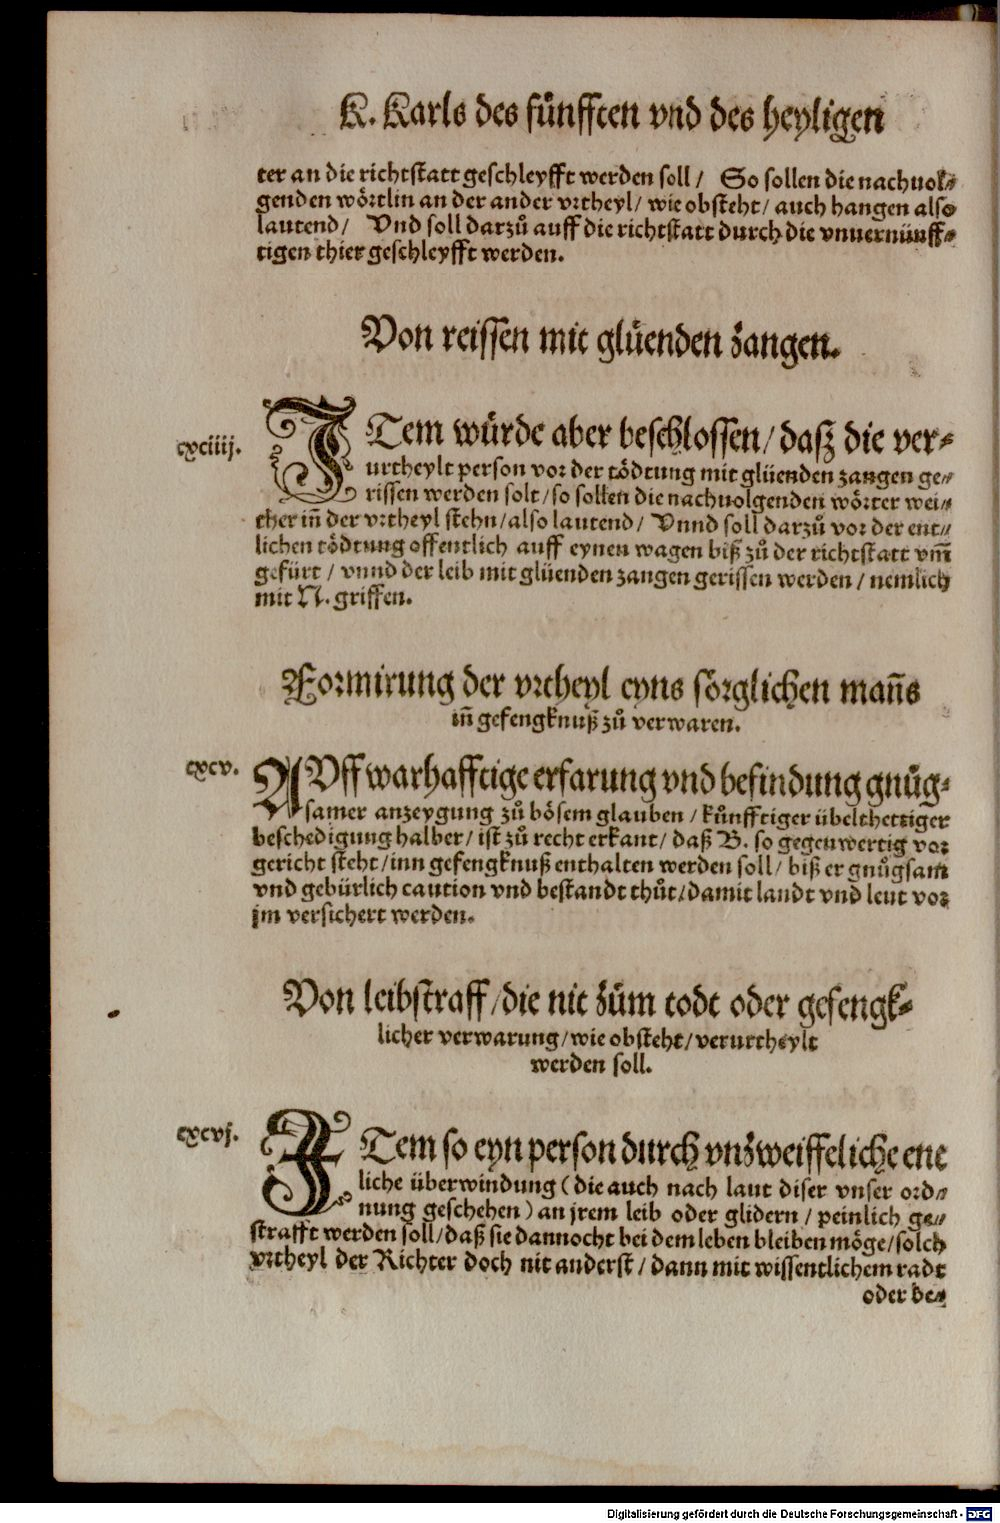 K. Karls des fünfften vnd des heyligen
ter an die richtstatt geschleyfft werden soll / So sollen die nachuol-
genden wörtlin an der ander vrtheyl / wie obsteht / auch hangen also
lautend / Vnd soll darzů auff die richtstatt durch die vnuernünff-
tigen thier geschleyfft werden.
Von reissen mit glüenden zangen.
cxciiij.
ITem würde aber beschlossen / daß die ver-
urtheylt person vor der tödtung mit glüenden zangen ge-
rissen werden solt / so sollen die nachuolgenden wörter wei-
ther iñ der vrtheyl stehn / also lautend / Vnnd soll darzů vor der ent-
lichen tödtung offentlich auff eynen wagen biß zů der richtstatt vm̃
gefürt / vnnd der leib mit glüenden zangen gerissen werden / nemlich
mit N. griffen.
Formirung der vrtheyl eyns sorglichen mañs
iñ gefengknuß zů verwaren.
cxcv.
AVff warhafftige erfarung vnd befindung gnůg-
samer anzeygung zů bösem glauben / künfftiger übelthettiger
beschedigung halber / ist zů recht erkant / daß B. so gegenwertig vor
gericht steht / inn gefengknuß enthalten werden soll / biß er gnůgsam
vnd gebürlich caution vnd bestandt thůt / damit landt vnd leut vor
jm versichert werden.
Von leibstraff / die nit zům todt oder gefengk-
licher verwarung / wie obsteht / verurtheylt
werden soll.
cxcvj.
ITem so eyn person durch vnzweiffeliche ent
liche überwindung (die auch nach laut diser vnser ord-
nung geschehen) an jrem leib oder glidern / peinlich ge-
strafft werden soll / daß sie dannocht bei dem leben bleiben möge / solch
vrtheyl der Richter doch nit anderst / dann mit wissentlichem radt
oder be-
Digitalisierung gefördert durch die Deutsche Forschungsgemeinschaft - DFG